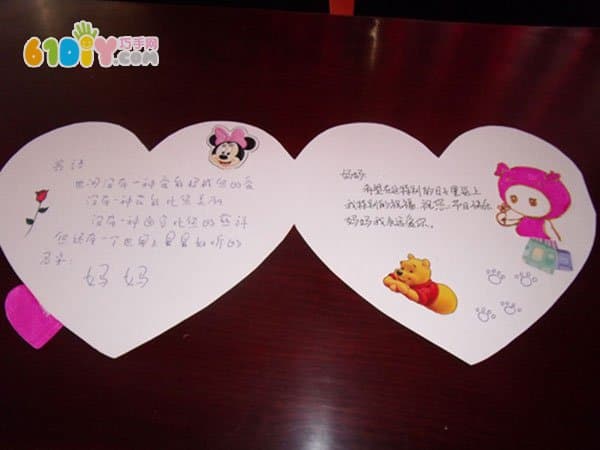 61DIY巧手网
.com
没有一种爱能超越您的爱
没有一种花能比您美丽
没有一种 比您的慈祥
但还有一个世界上最最好听的
名字：
妈妈
妈妈：
希望在这特别的日子里送上
我特别的祝福。祝您 节日快乐
妈妈我永远爱你。